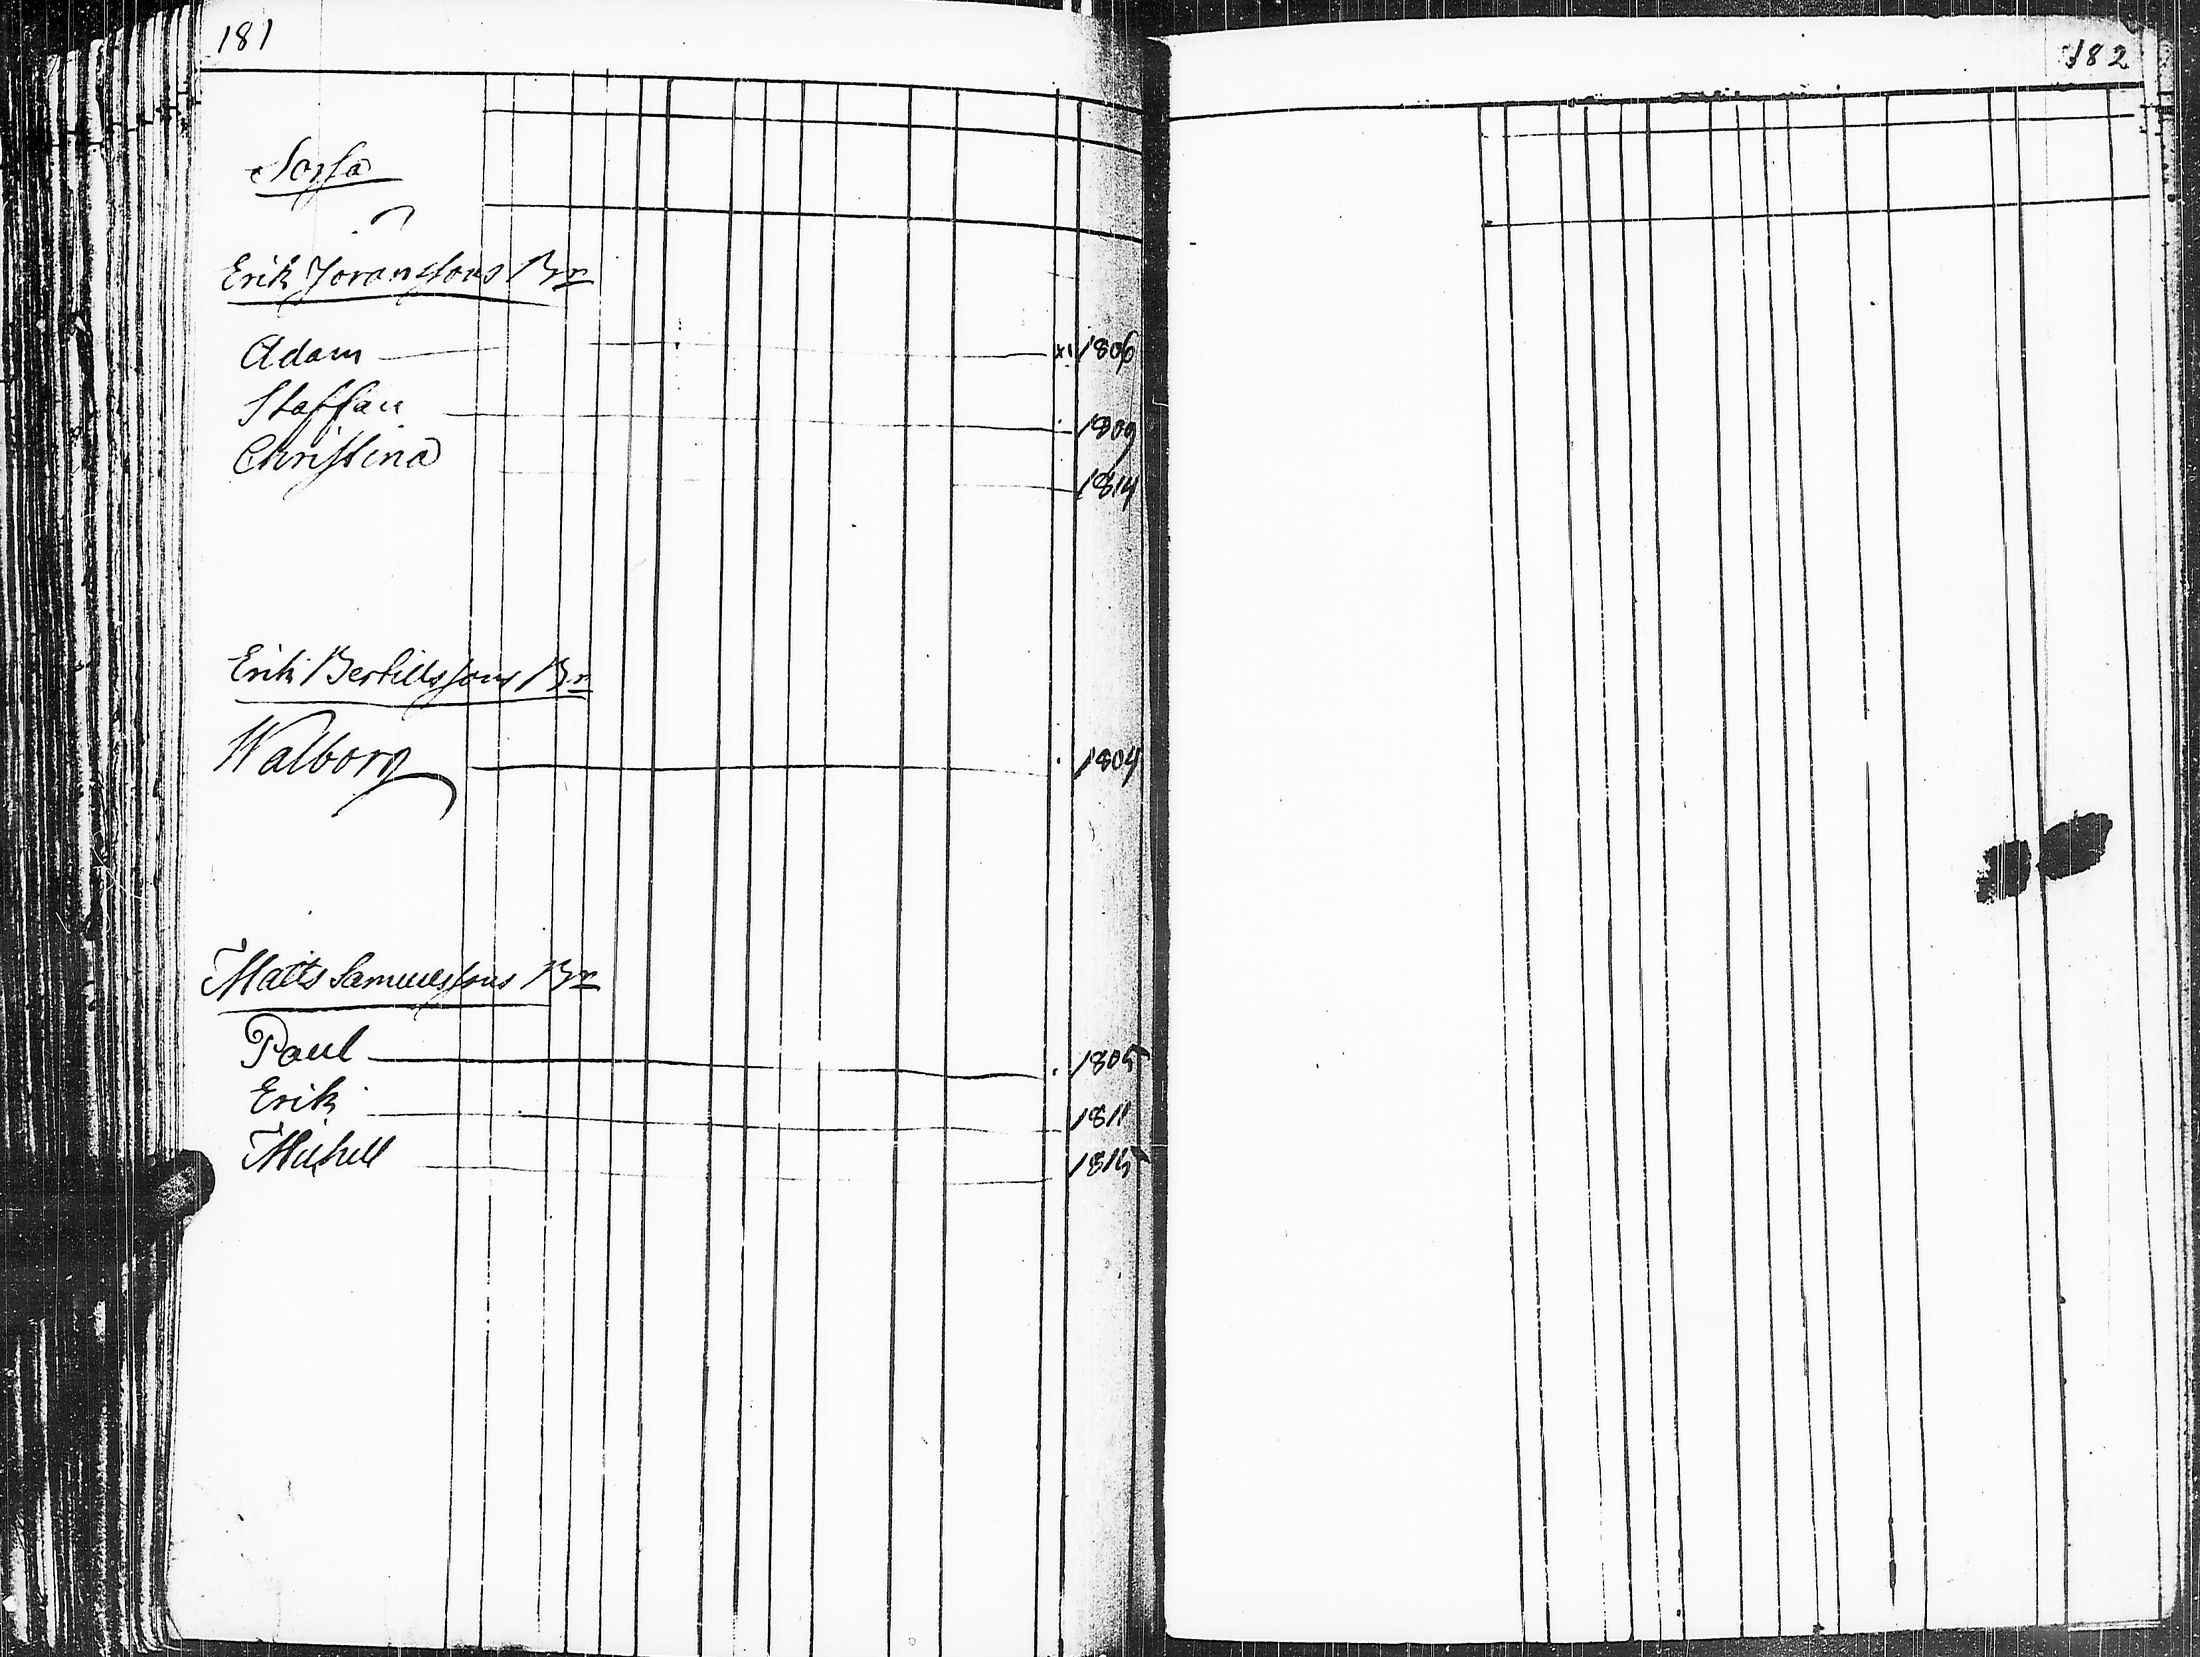 181
182
Sorsa
Erik Joranssons Br
Adam 1806
Staffan 1809
Christina 1814
Erik Bertillssons Br
Walborg 1804
Matts Samuelssons Br
Paul 1805
Erik 1811
Michell 1815